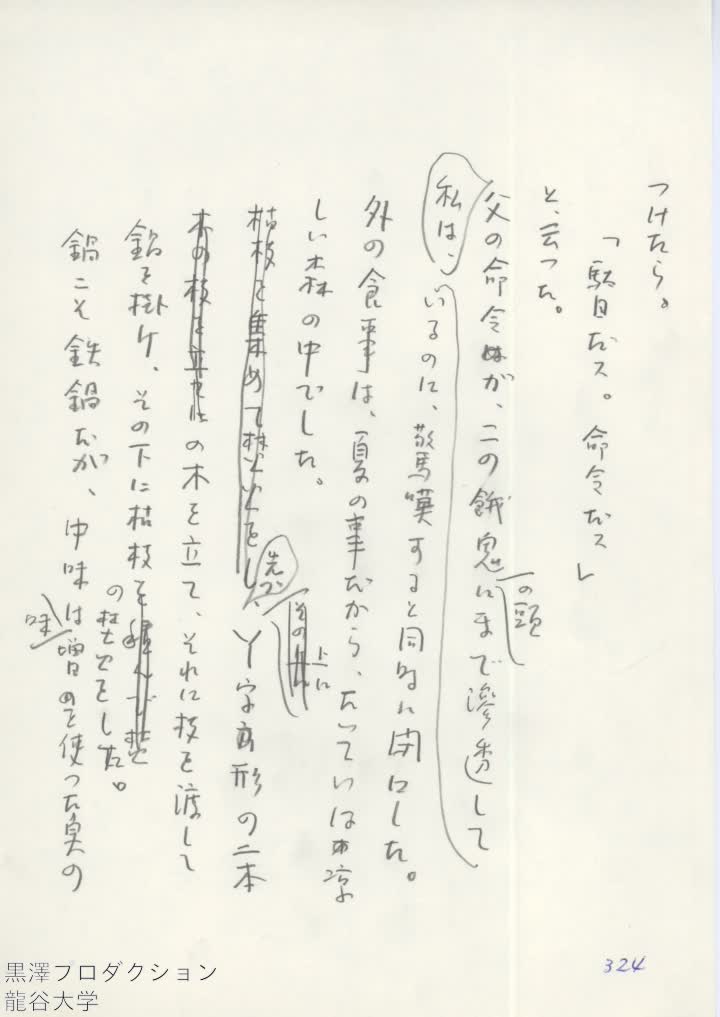 つけたら。
「駄目だス。命令だス」
と、云った。
父の命令が、この餓鬼の頭にまで滲透して
私は、いるのに、驚嘆すると同時に閉口した。
外の食事は、夏の事だから、たいていは涼
しい森の中でした。
枯枝を集めて焚火をし、先づ、その上に丫字形の二本
木の枝を立ての木を立て、それに枝を渡して
鍋を掛け、その下に枯枝を積んで焚
の焚火をした。
鍋こそ鉄鍋だが、中味は味噌を使った魚の
324
黒澤プロダクション
龍谷大学